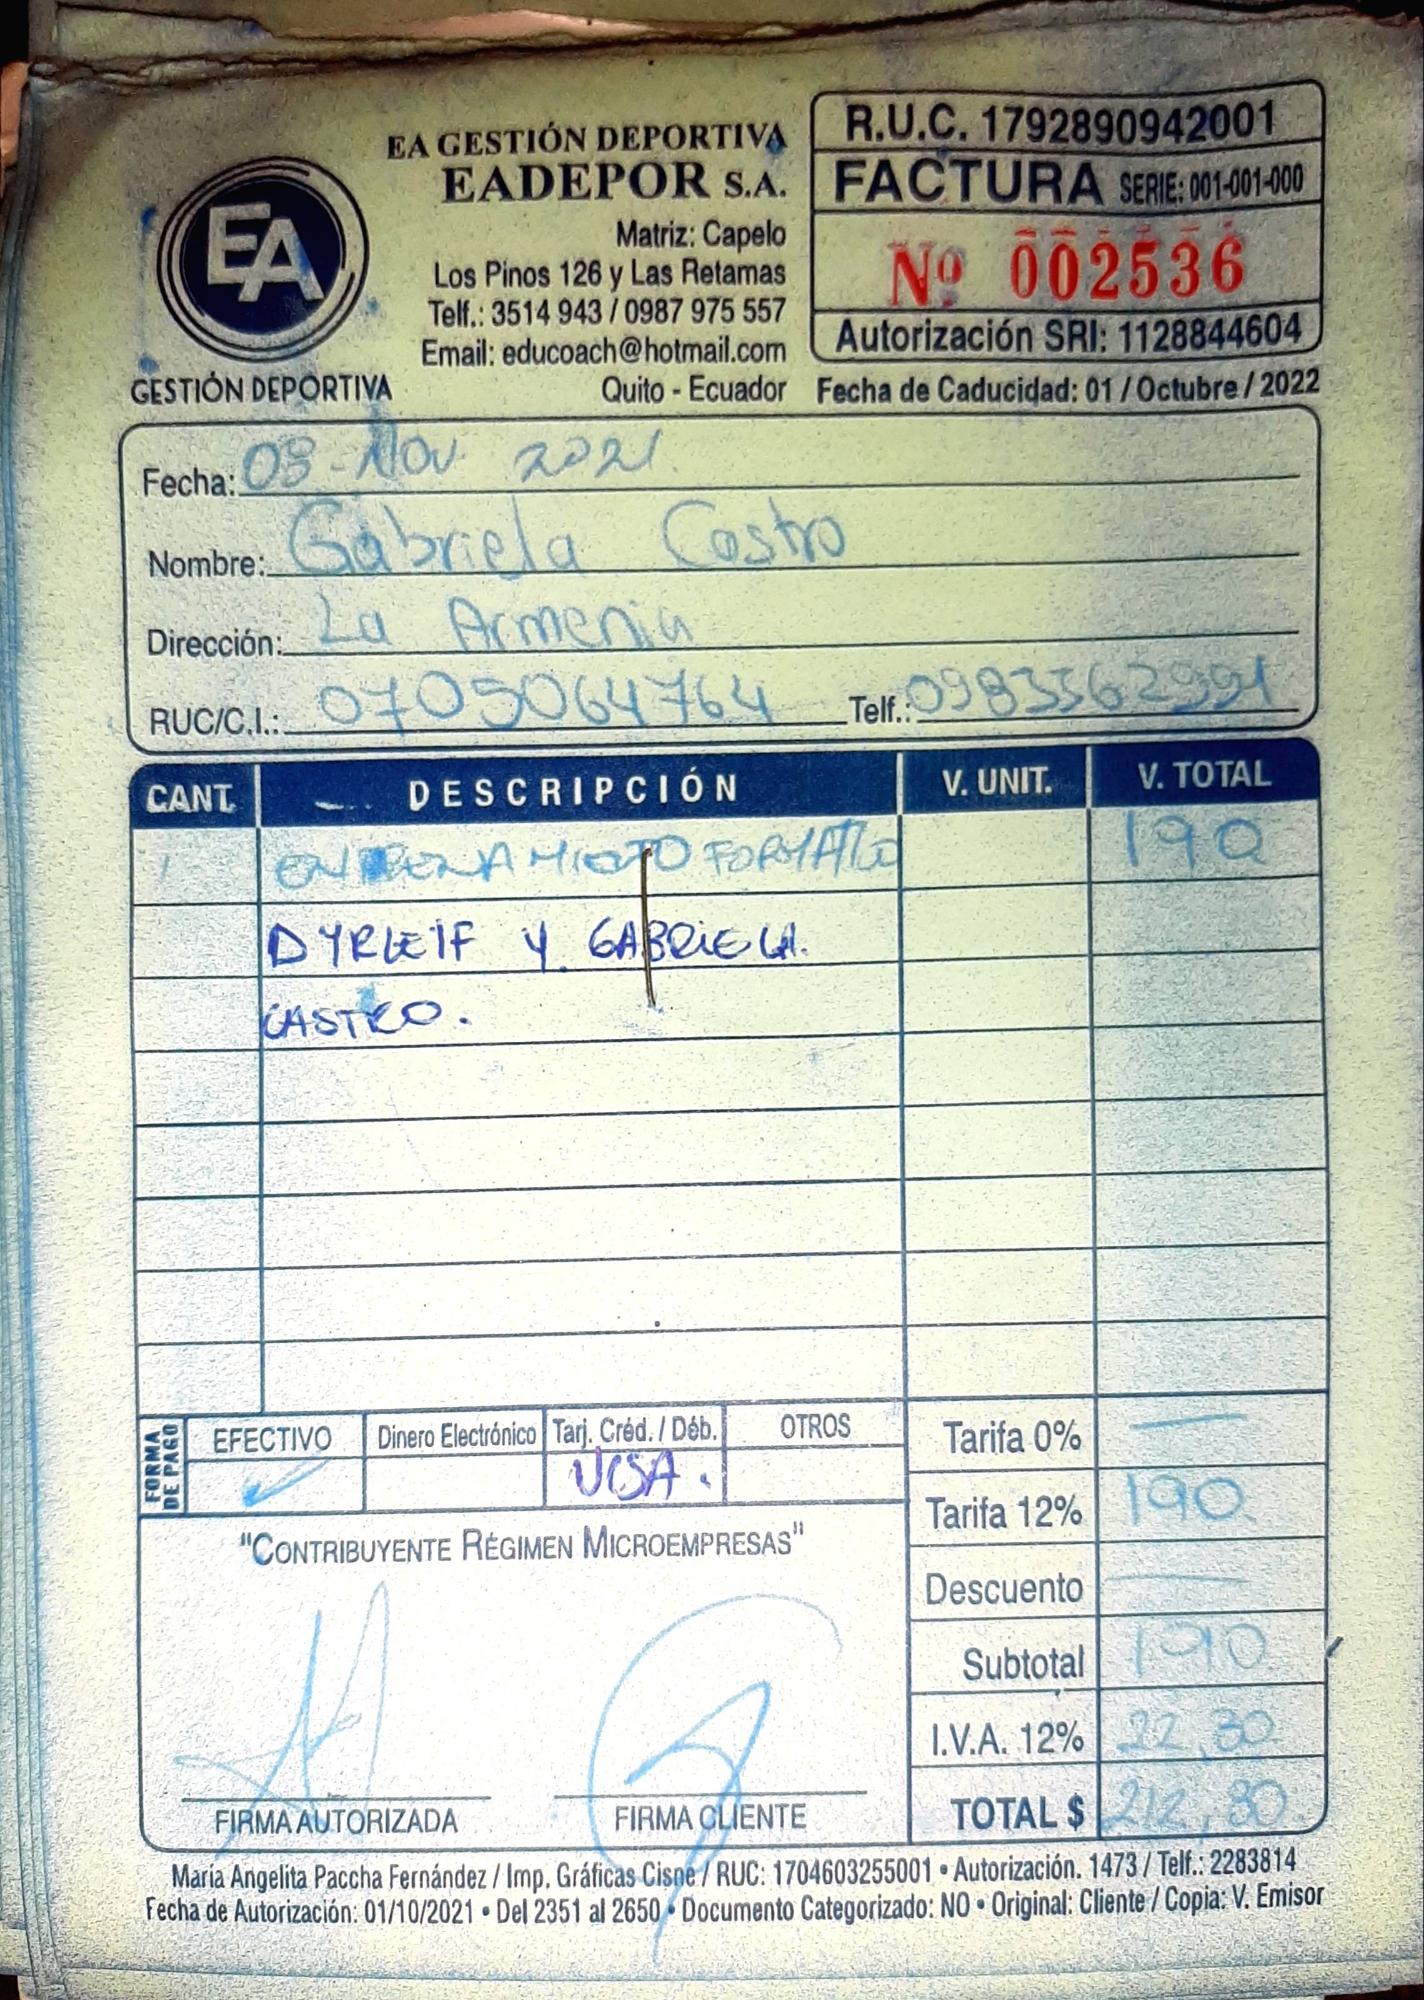 EA GESTIÓN DEPORTIVA
EADEPOR S.A.
Matriz: Capelo
Los Pinos 126 y Las Retamas
Telf.: 3514 943 / 0987 975 557
Email: educoach@hotmail.com
Quito - Ecuador
EA
GESTIÓN DEPORTIVA
R.U.C. 1792890942001
FACTURA SERIE: 001-001-000
Nº 002536
Autorización SRI: 1128844604
Fecha de Caducidad: 01 / Octubre / 2022
Fecha: 03 - Nov 2021
Nombre: Gabriela Castro
Dirección: La Armenia
RUC/C.I.: 0705064764 Telf.: 0983362991
CANT. DESCRIPCIÓN V. UNIT. V. TOTAL
1 190
DYRLEIF Y GABRIELA
CASTRO.
FORMA DE PAGO
EFECTIVO Dinero Electrónico Tarj. Créd. / Déb. OTROS
VISA.
Tarifa 0% —
Tarifa 12% 190
Descuento —
Subtotal 190
I.V.A. 12% 22,30
TOTAL $ 212,30
"CONTRIBUYENTE RÉGIMEN MICROEMPRESAS"
FIRMA AUTORIZADA FIRMA CLIENTE
María Angelita Paccha Fernández / Imp. Gráficas Cisne / RUC: 1704603255001 • Autorización. 1473 / Telf.: 2283814
Fecha de Autorización: 01/10/2021 • Del 2351 al 2650 • Documento Categorizado: NO • Original: Cliente / Copia: V. Emisor